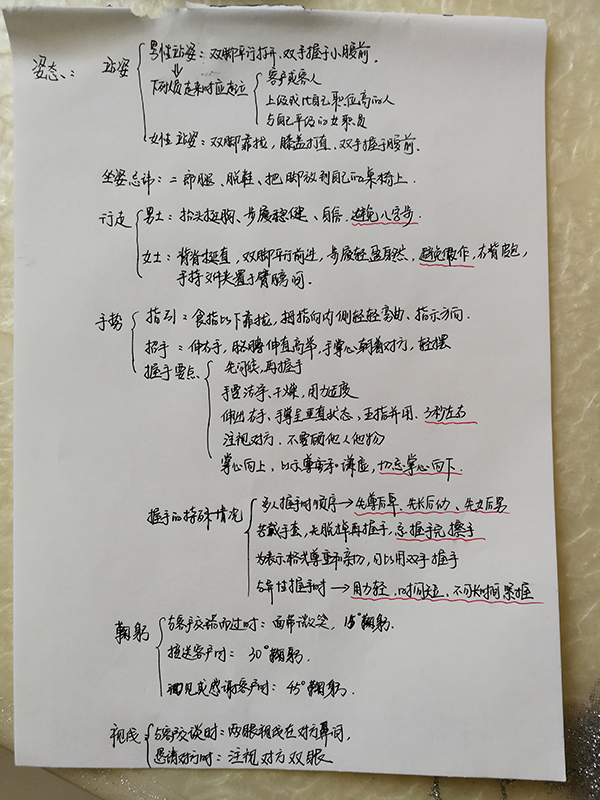 姿态:
站姿
男性站姿：双脚平行打开、双手握于小腹前.
下列人员走来时应起立
客户或客人
上级或比自己职位高的人
与自己平级的女职员
女性站姿：双脚靠拢，膝盖打直、双手握于腹前.
坐姿忌讳：二郎腿、脱鞋、把脚放到自己的桌椅上.
行走
男士：抬头挺胸、步履稳健、自信.避免八字步.
女士：背脊挺直，双脚平行前进，步履轻盈自然，避免做作，右背皮包，
手持文件夹置于臂膀间.
手势
指引：食指以下靠拢，拇指向内侧轻轻弯曲、指示方向.
招手：伸右手，胳膊伸直高举，手掌心朝着对方，轻摆
握手要点
先问候，再握手
手要洁净、干燥，用力适度
伸出右手、手掌呈垂直状态，五指并用.3秒左右
注视对方.不要顾他人他物
掌心向上，以示尊重和谦虚，切忌掌心向下.
握手的特殊情况
多人握手时顺序→先尊后卑、先长后幼、先女后男
若戴手套，先脱掉再握手，忌握手完擦手
为表示格外尊重和亲切，可以用双手握手
与异性握手时→用力轻、时间短、不可长时间紧握
鞠躬
与客户交错而过时：面带微笑，15°鞠躬.
接送客户时：30°鞠躬.
遇见或感谢客户时：45°鞠躬.
视线
与客户交谈时：两眼视线在对方鼻间，
恳请对方时：注视对方双眼